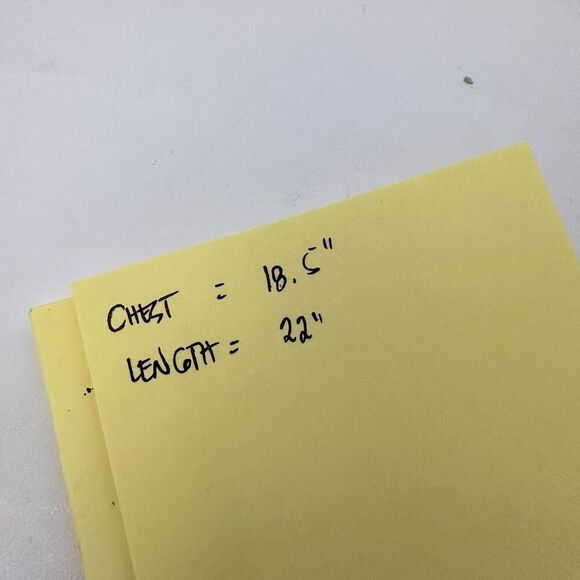 CHEST = 18.5"
LENGTH = 22"